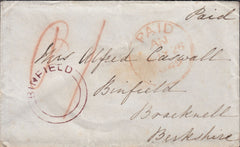 Paid
PAID
Mrs Alfred Caswall
Binfield
BINFIELD
Bracknell
Berkshire